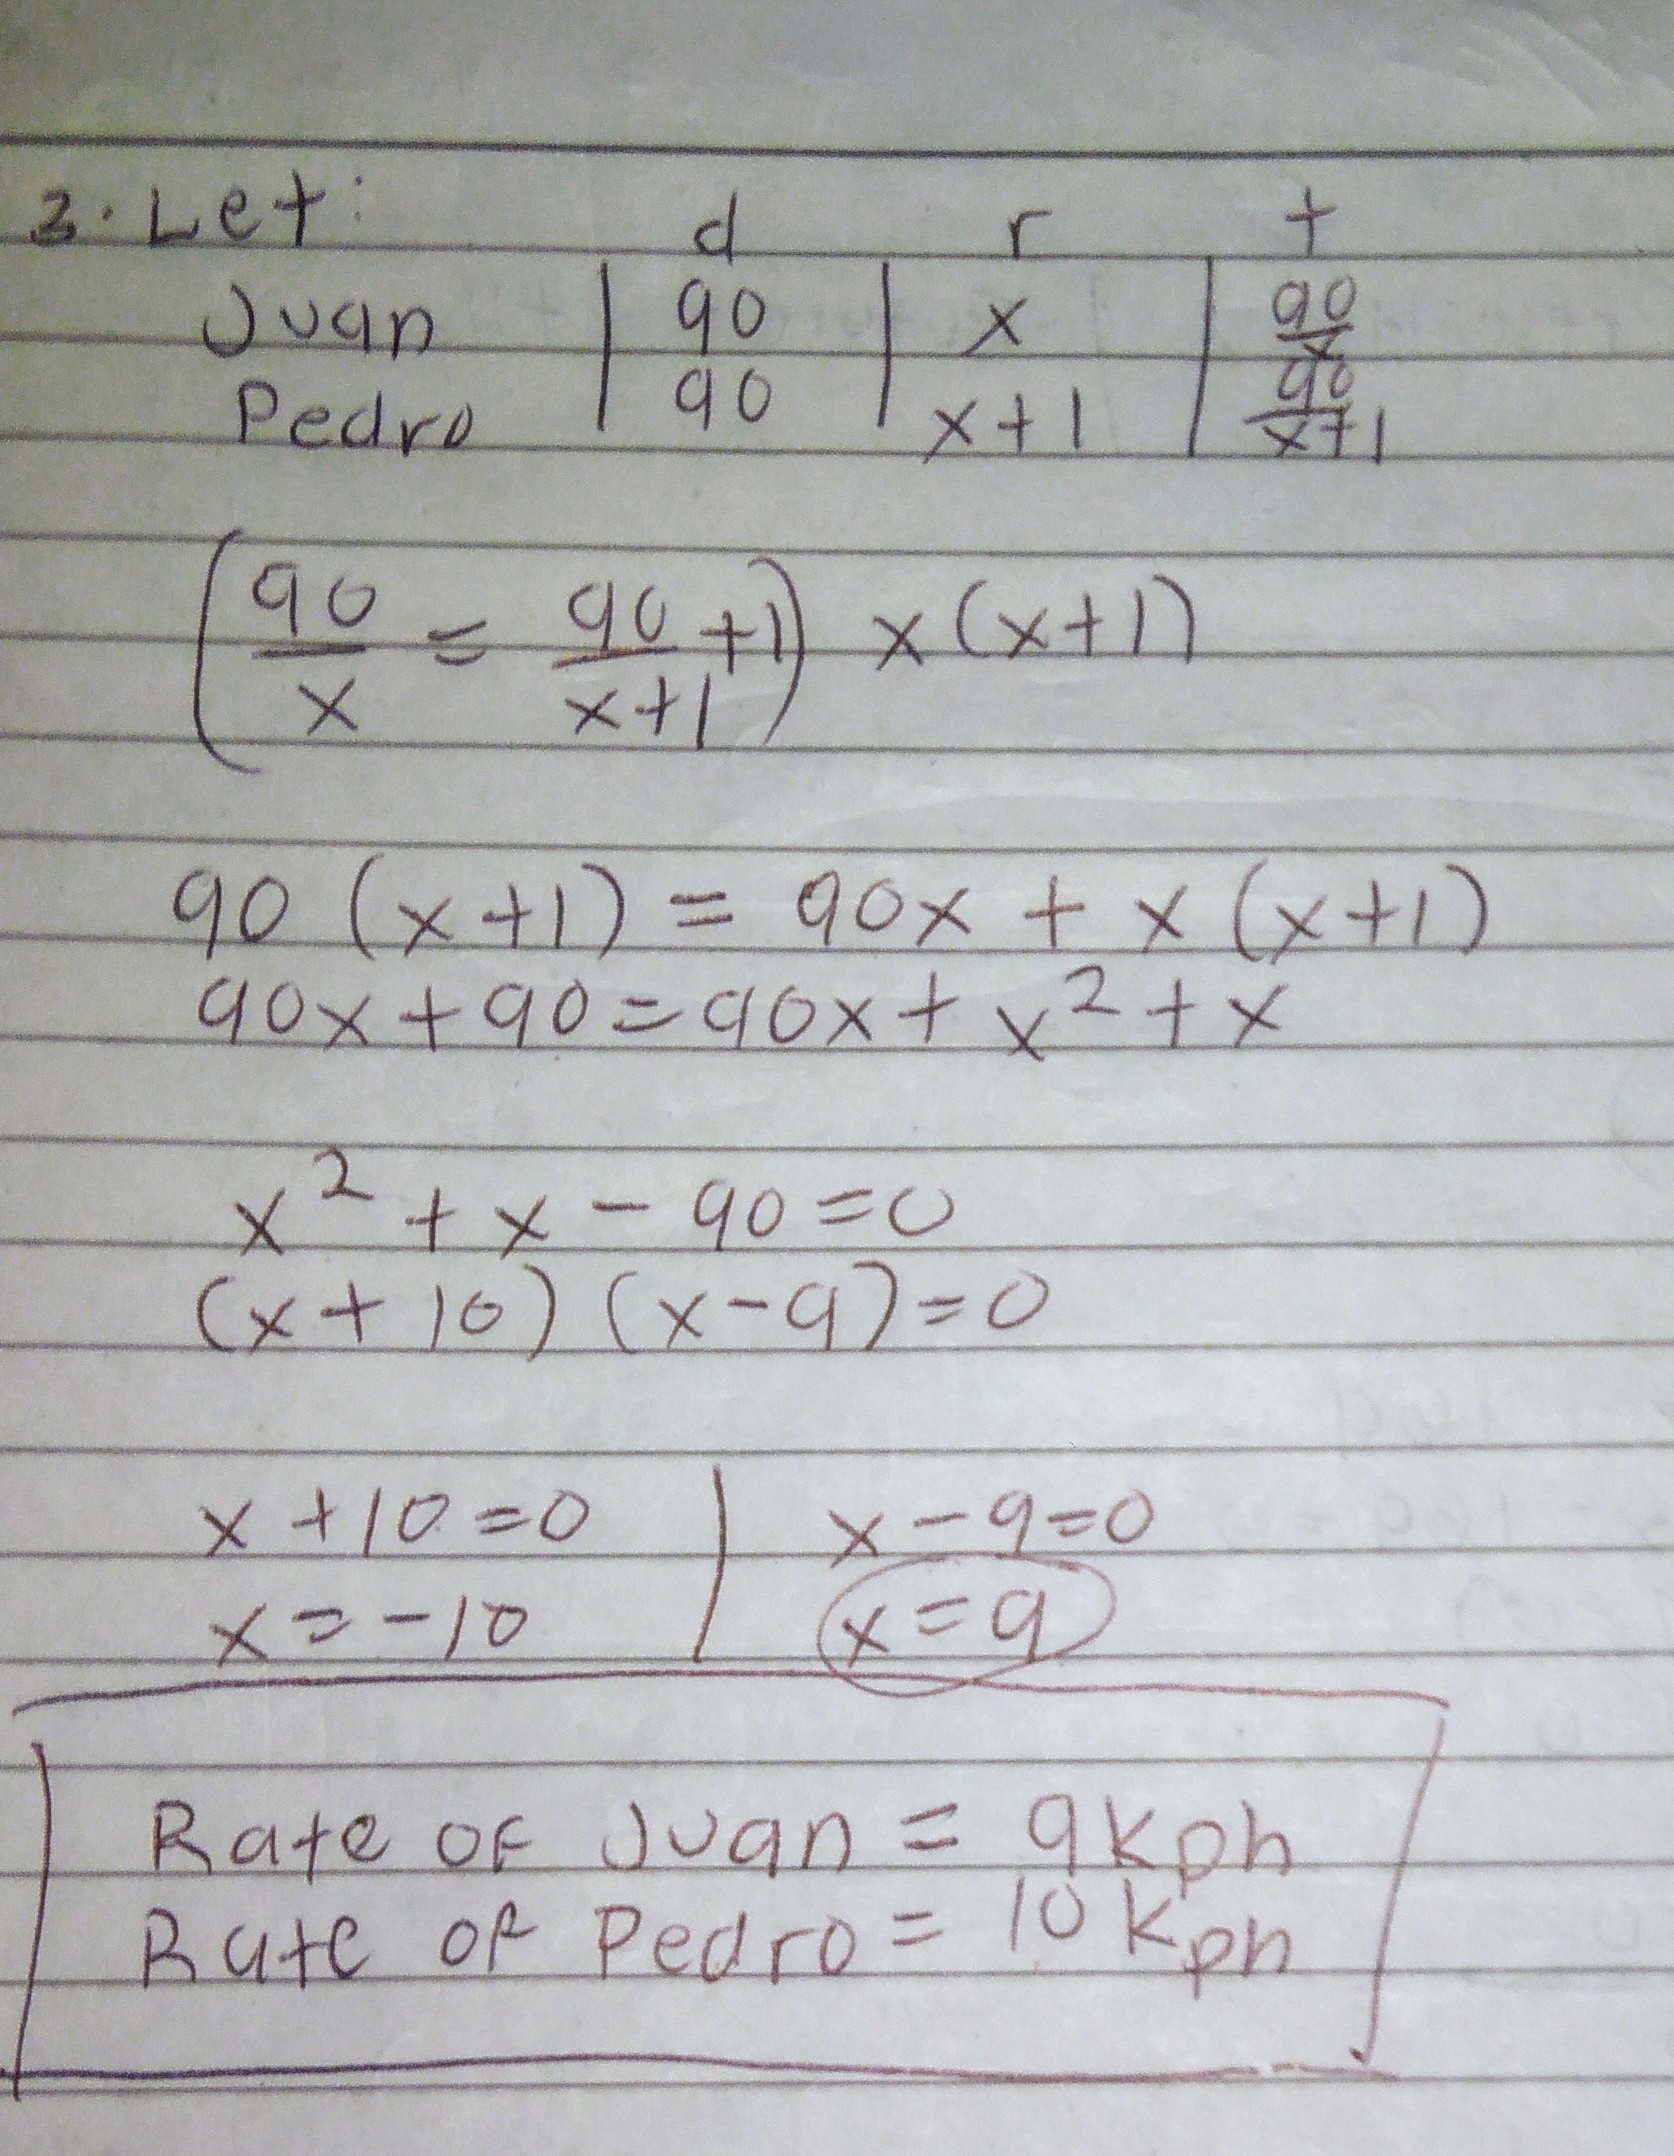 3. Let: d r t
Juan | 90 | x | 90/x
Pedro | 90 | x+1 | 90/x+1
(90/x = 90/x+1 +1) x(x+1)
90 (x+1) = 90x + x (x+1)
90x + 90 = 90x + x² + x
x² + x - 90 = 0
(x + 10) (x - 9) = 0
x + 10 = 0 | x - 9 = 0
x = -10 | x = 9
Rate of Juan = 9 kph
Rate of Pedro = 10 kph